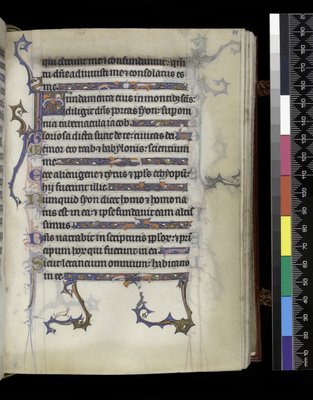 qui oderunt me et confundantur: qm̄
tu dn̄e adiuuisti me et consolatus es
me
Fundamenta eius in montib; sc̄is:
diligit dn̄s portas syon: super om
nia tabernacula iacob.
Gloriosa dicta sunt de te: ciuitas dei
Memor ero raab et babylonis: scientium
me
Ecce alienigene et tyrus et ppl̄s ethyopū:
hij fuerunt illic
Numquid syon dicet homo et homo na
tus est in ea: et ipse fundauit eam altis
simus
Dn̄s narrabit in scripturis pplo᷑: et prin
cipum hor̄ qui fuerunt in ea
Sicut letancium omnium: habitatio
in te